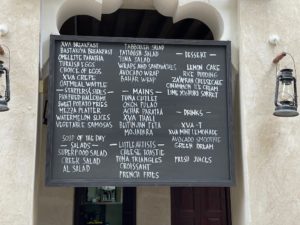 XVA BREAKFAST
BASTAKIYA BREAKFAST
OMELETTE PARATHA
TURKISH EGGS
CHOICE OF EGGS
XVA CREPE
OATMEAL WAFFLE
STARTERS & SIDES
PAN FRIED HALLOUMI
SWEET POTATO FRIES
MEZZA PLATTER
WATERMELON SLICES
VEGETABLE SAMOSAS
SOUP OF THE DAY
- SALADS -
SUPERFOOD SALAD
GREEK SALAD
AL SALAD
TABBOULEH SALAD
FATTOUSH SALAD
TUNA SALAD
WRAPS AND SANDWICHES
AVOCADO WRAP
- MAINS -
TUNA CUTLET
XVA THALI
BUTTERNUT
MOJADARA
TUNA TRIANGLES
CROISSANT
FRENCH FRIES
- DESSERT -
LEMON CAKE
RICE PUDDING
CHEESECAKE
CINNAMON ICE CREAM
LIME SORBET
- DRINKS -
XVA - T
XVA MINT LEMONADE
AVOCADO SMOOTHIE
GREEN DREAM
FRESH JUICES